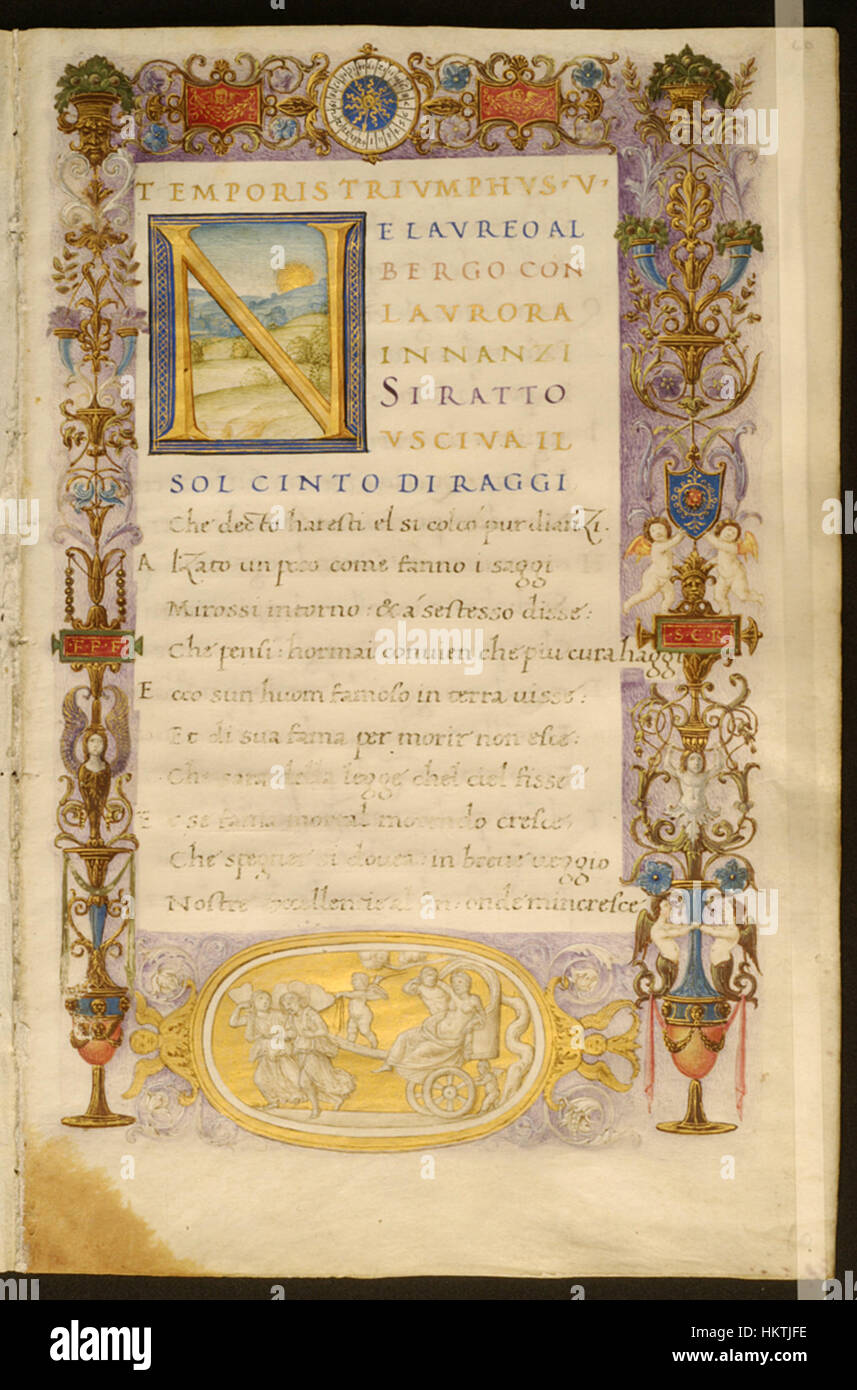 TEMPORIS TRIVMPHVS · V ·
NE LAVREO AL
BERGO CON
LAVRORA
INNANZI
SI RATTO
VSCIVA IL
SOL CINTO DI RAGGI
Che decto haresti el si colco pur dianzi.
Alzato un poco come fanno i saggi
Mirossi intorno: & a sestesso disse:
Che pensi: hormai convien che piu cura haggi
Ecco sun huom famoso in terra visse:
Et di sua fama per morir non esce:
Che sara della legge chel ciel fisse
E se fama mortal morendo cresce
Che spegner si dovea in breve veggio
Nostre excellentie al fin: onde mincresce
· F · P · F ·
· S · C · R ·
alamy
Image ID: HKTJFE
www.alamy.com